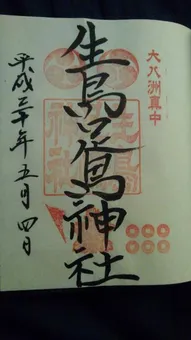 大八洲真中
生島足島神社
平成三十年五月四日